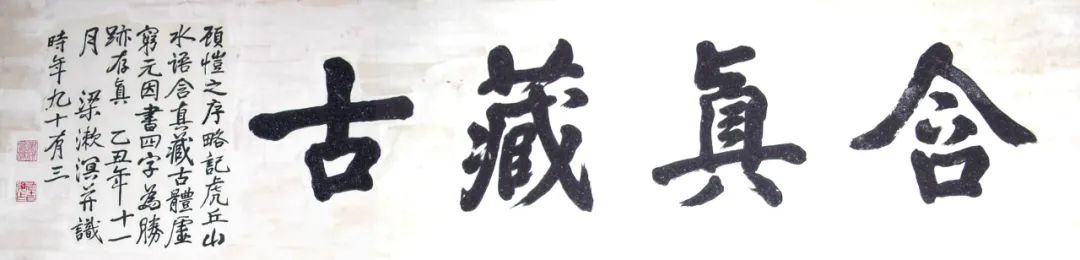 含真藏古
顾愷之序略記虎丘山
水语含真藏古體虛
窮元因書四字為勝
跡存真 乙丑年十一
月 梁漱溟并識
時年九十有三